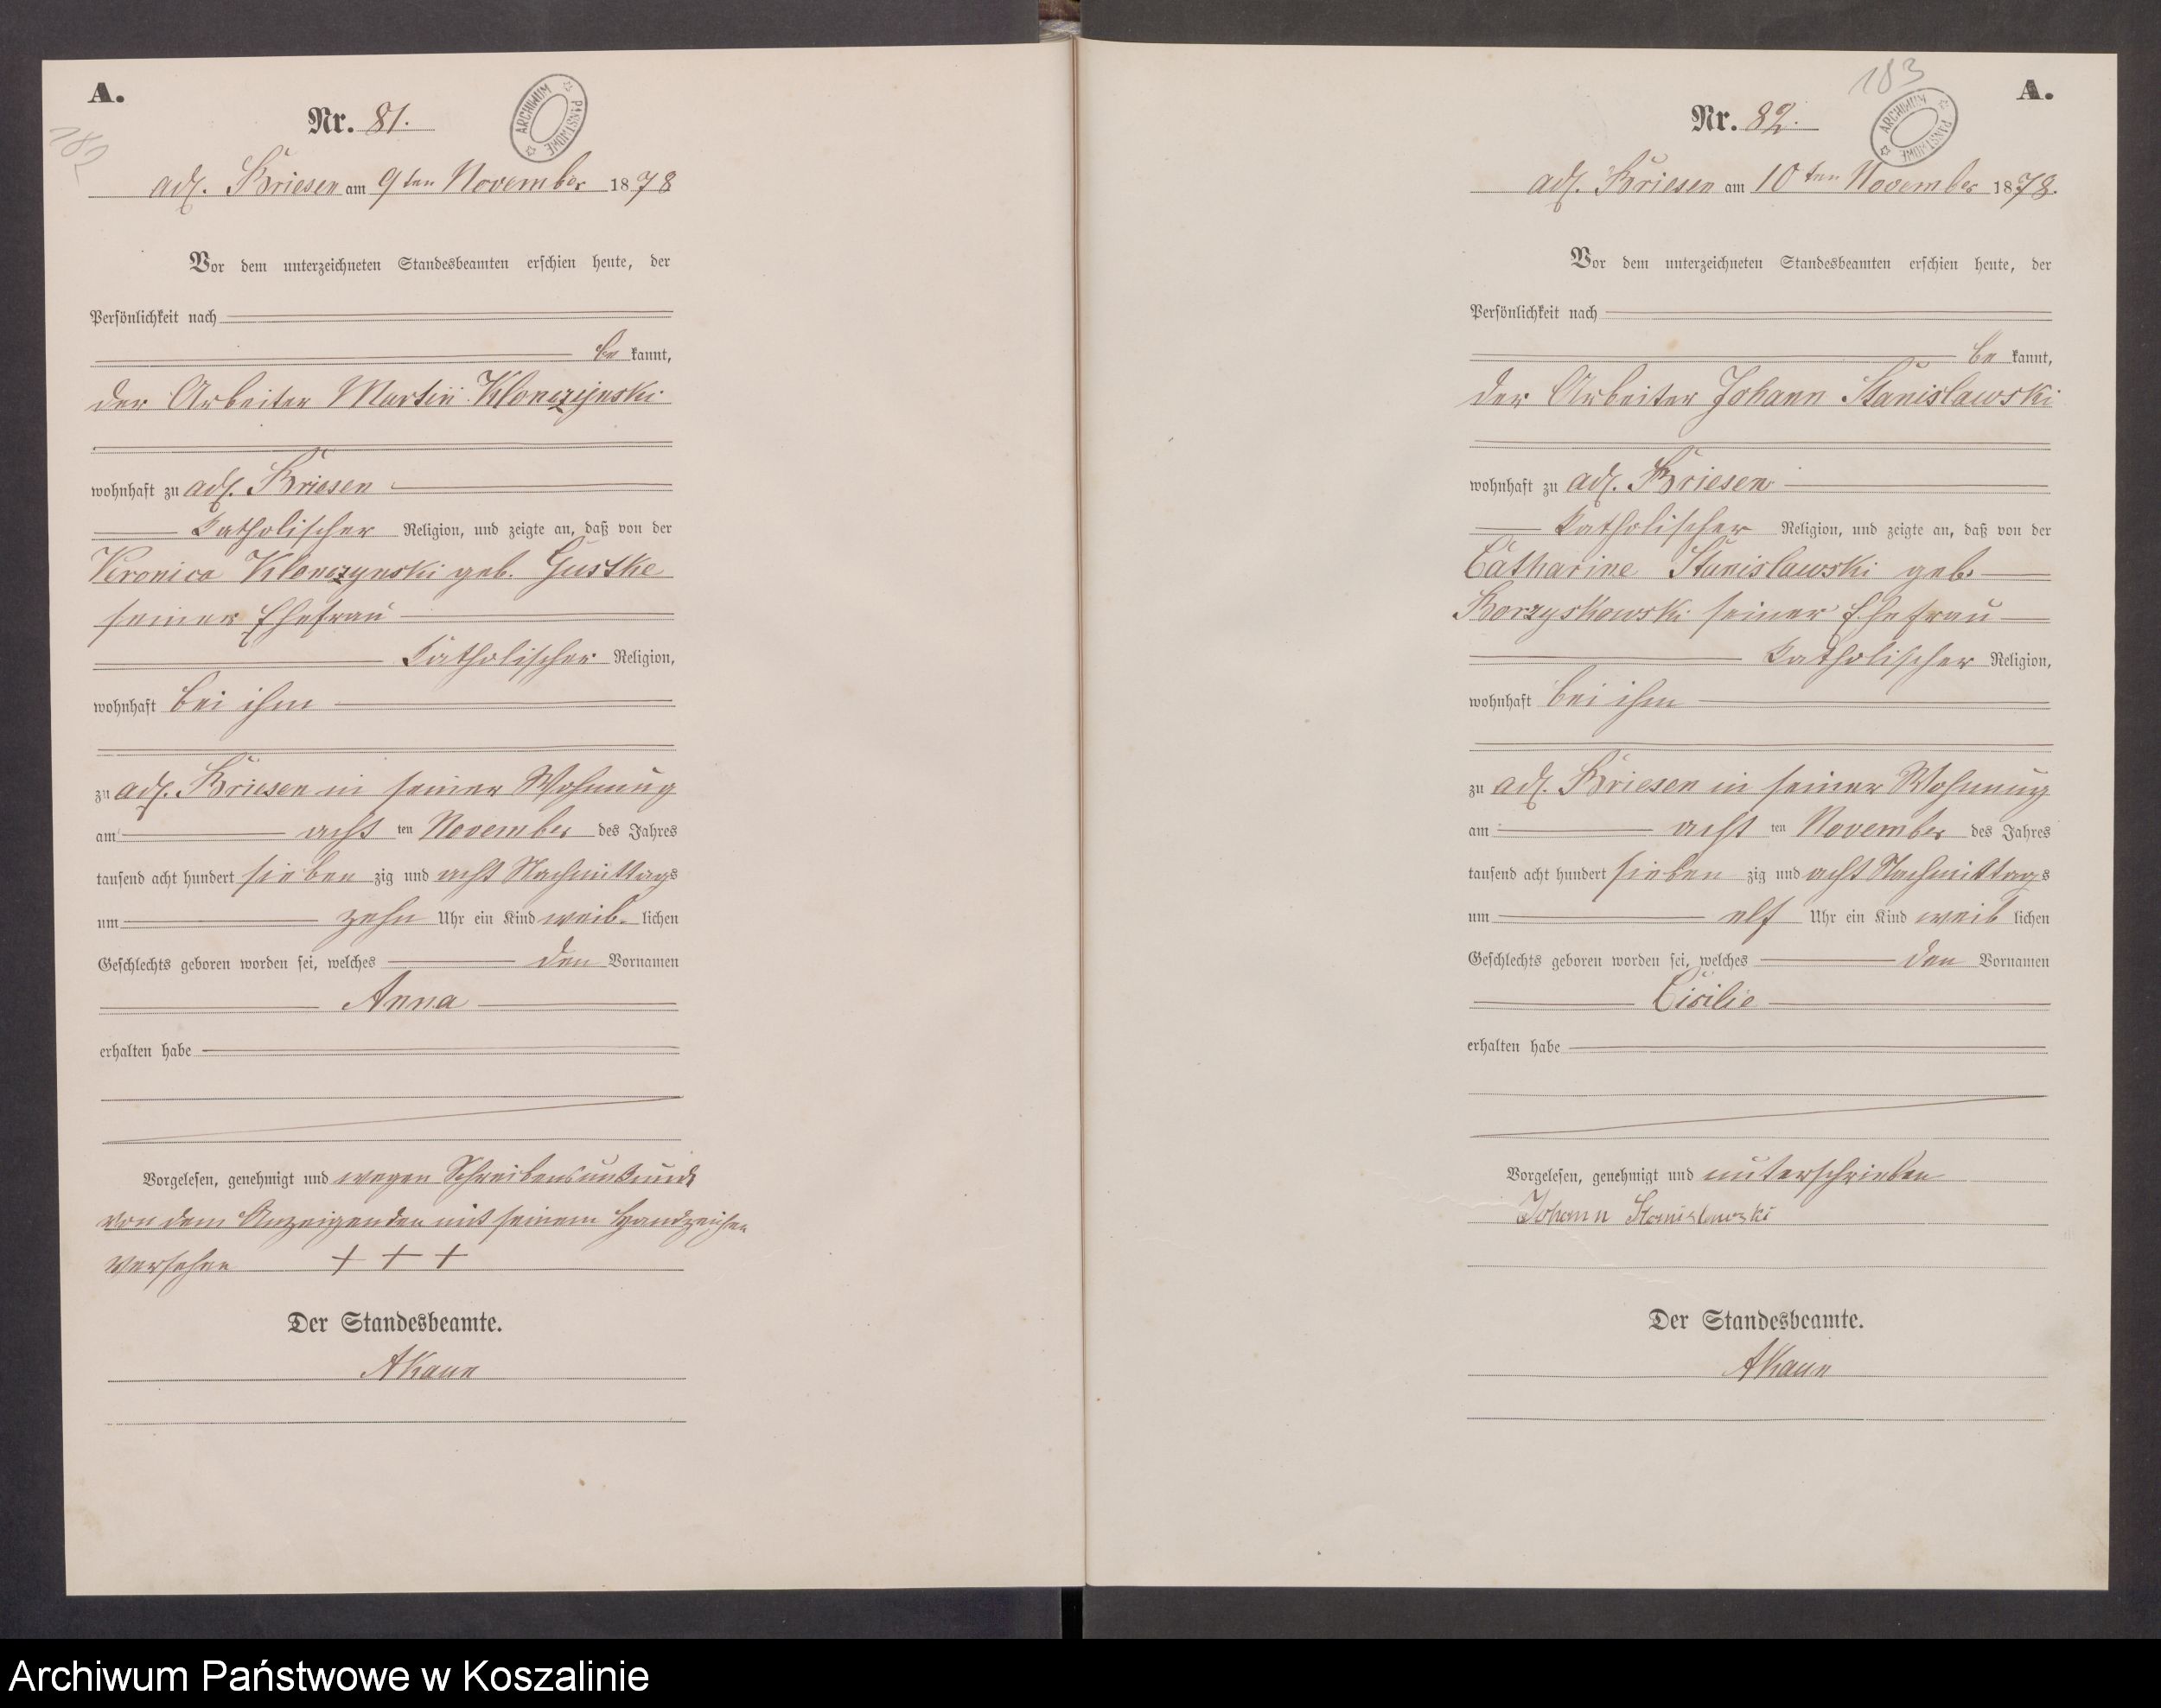 A.
182
Nr. 81.
ARCHIWUM PAŃSTWOWE
adl. Briesen am 9ten November 1878
Vor dem unterzeichneten Standesbeamten erschien heute, der
Persönlichkeit nach
be kannt,
der Arbeiter Martin Klonczynski
wohnhaft zu adl. Briesen
katholischer Religion, und zeigte an, daß von der
Veronica Klonczynski geb. Gustke
seiner Ehefrau
katholischer Religion,
wohnhaft bei ihm
zu adl. Briesen in seiner Wohnung
am acht ten November des Jahres
tausend acht hundert sieben zig und acht Nachmittags
um zehn Uhr ein Kind weib- lichen
Geschlechts geboren worden sei, welches den Vornamen
Anna
erhalten habe
Vorgelesen, genehmigt und wegen Schreibensunkunde
von dem Anzeigenden mit seinem Handzeichen
versehen + + +
Der Standesbeamte.
AKaun
183
A.
Nr. 82.
ARCHIWUM PAŃSTWOWE
adl. Briesen am 10ten November 1878.
Vor dem unterzeichneten Standesbeamten erschien heute, der
Persönlichkeit nach
be kannt,
der Arbeiter Johann Stanislawski
wohnhaft zu adl. Briesen
katholischer Religion, und zeigte an, daß von der
Catharine Stanislawski geb.
Borzyskowski seiner Ehefrau
katholischer Religion,
wohnhaft bei ihm
zu adl. Briesen in seiner Wohnung
am acht ten November des Jahres
tausend acht hundert sieben zig und acht Nachmittags
um elf Uhr ein Kind weib lichen
Geschlechts geboren worden sei, welches den Vornamen
Cicilie
erhalten habe
Vorgelesen, genehmigt und unterschrieben
Johann Stanislawski
Der Standesbeamte.
AKaun
Archiwum Państwowe w Koszalinie